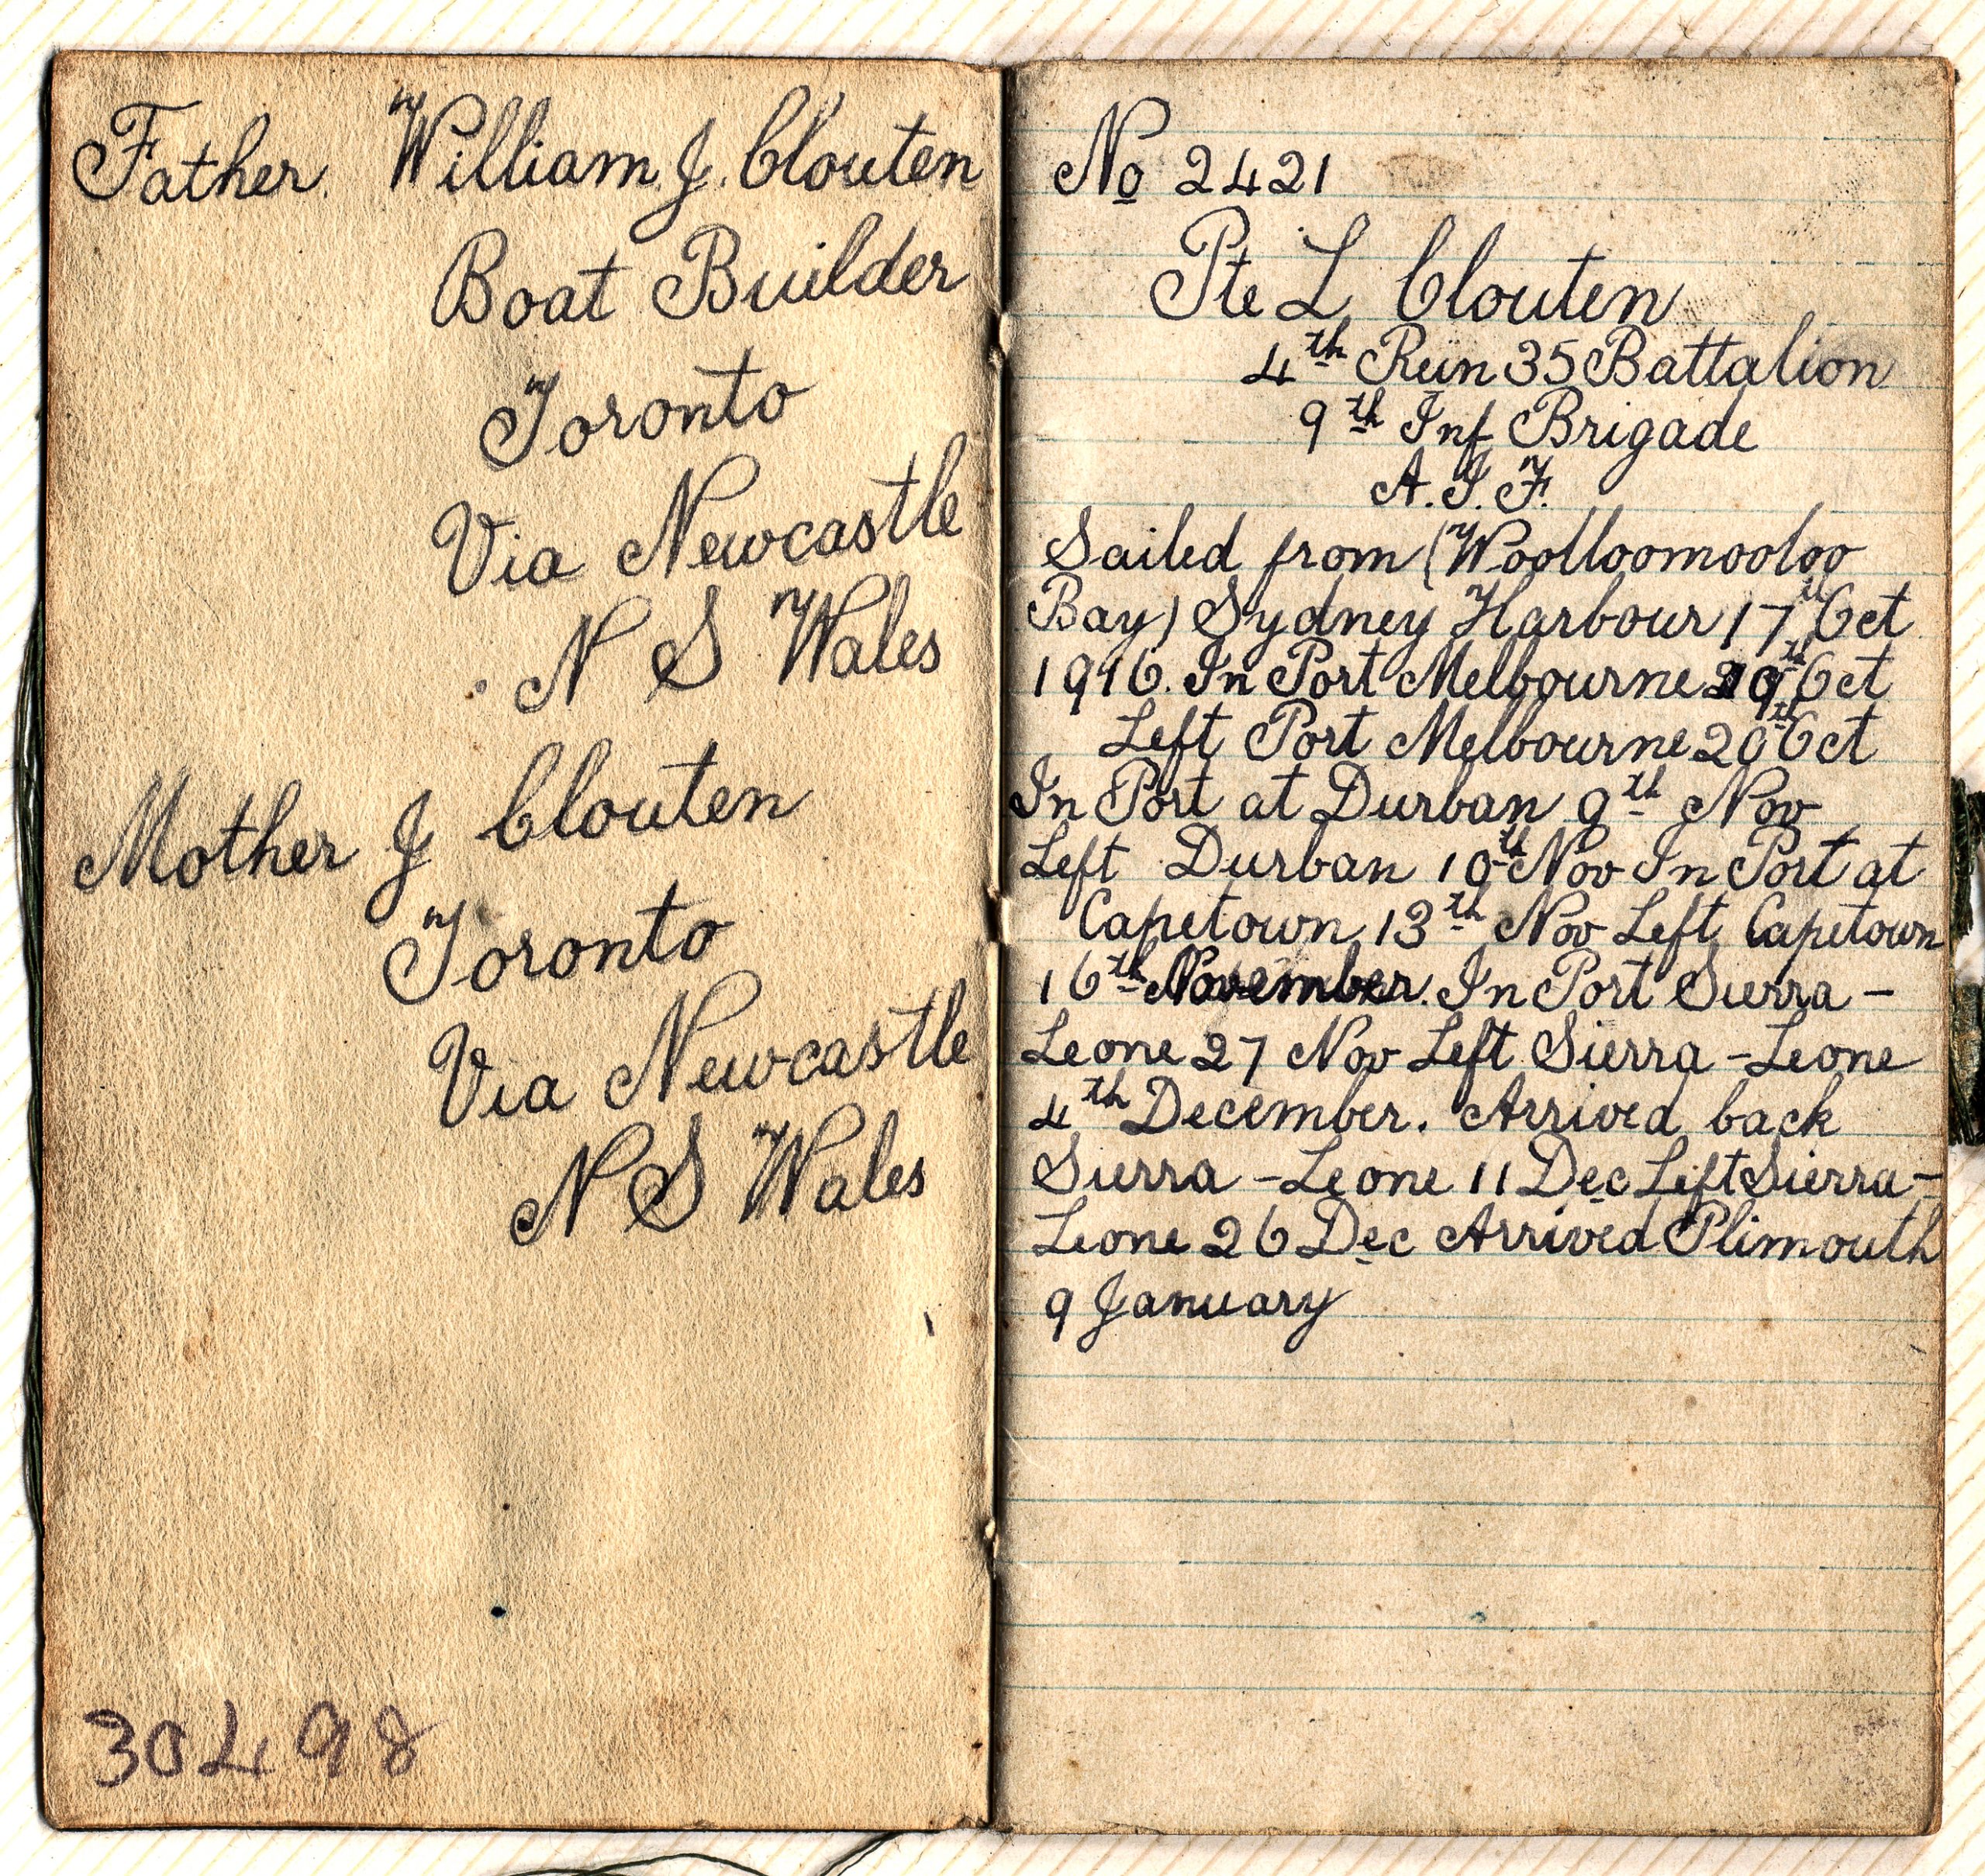 Father. William. J. Clouten
Boat Builder
Toronto
Via Newcastle
N S Wales
Mother J Clouten
Toronto
Via Newcastle
N S Wales
30498
No 2421
Pte L Clouten
4th Rein 35 Battalion
9th Inf Brigade
A. I. F.
Sailed from (Woolloomooloo
Bay) Sydney Harbour 17th Oct
1916. In Port Melbourne 19th Oct
Left Port Melbourne 20th Oct
In Port at Durban 9th Nov
Left Durban 10th Nov In Port at
Capetown 13th Nov Left Capetown
16th November. In Port Sierra -
Leone 27 Nov Left Sierra - Leone
4th December. Arrived back
Sierra - Leone 11 Dec Left Sierra -
Leone 26 Dec Arrived Plimouth
9 January